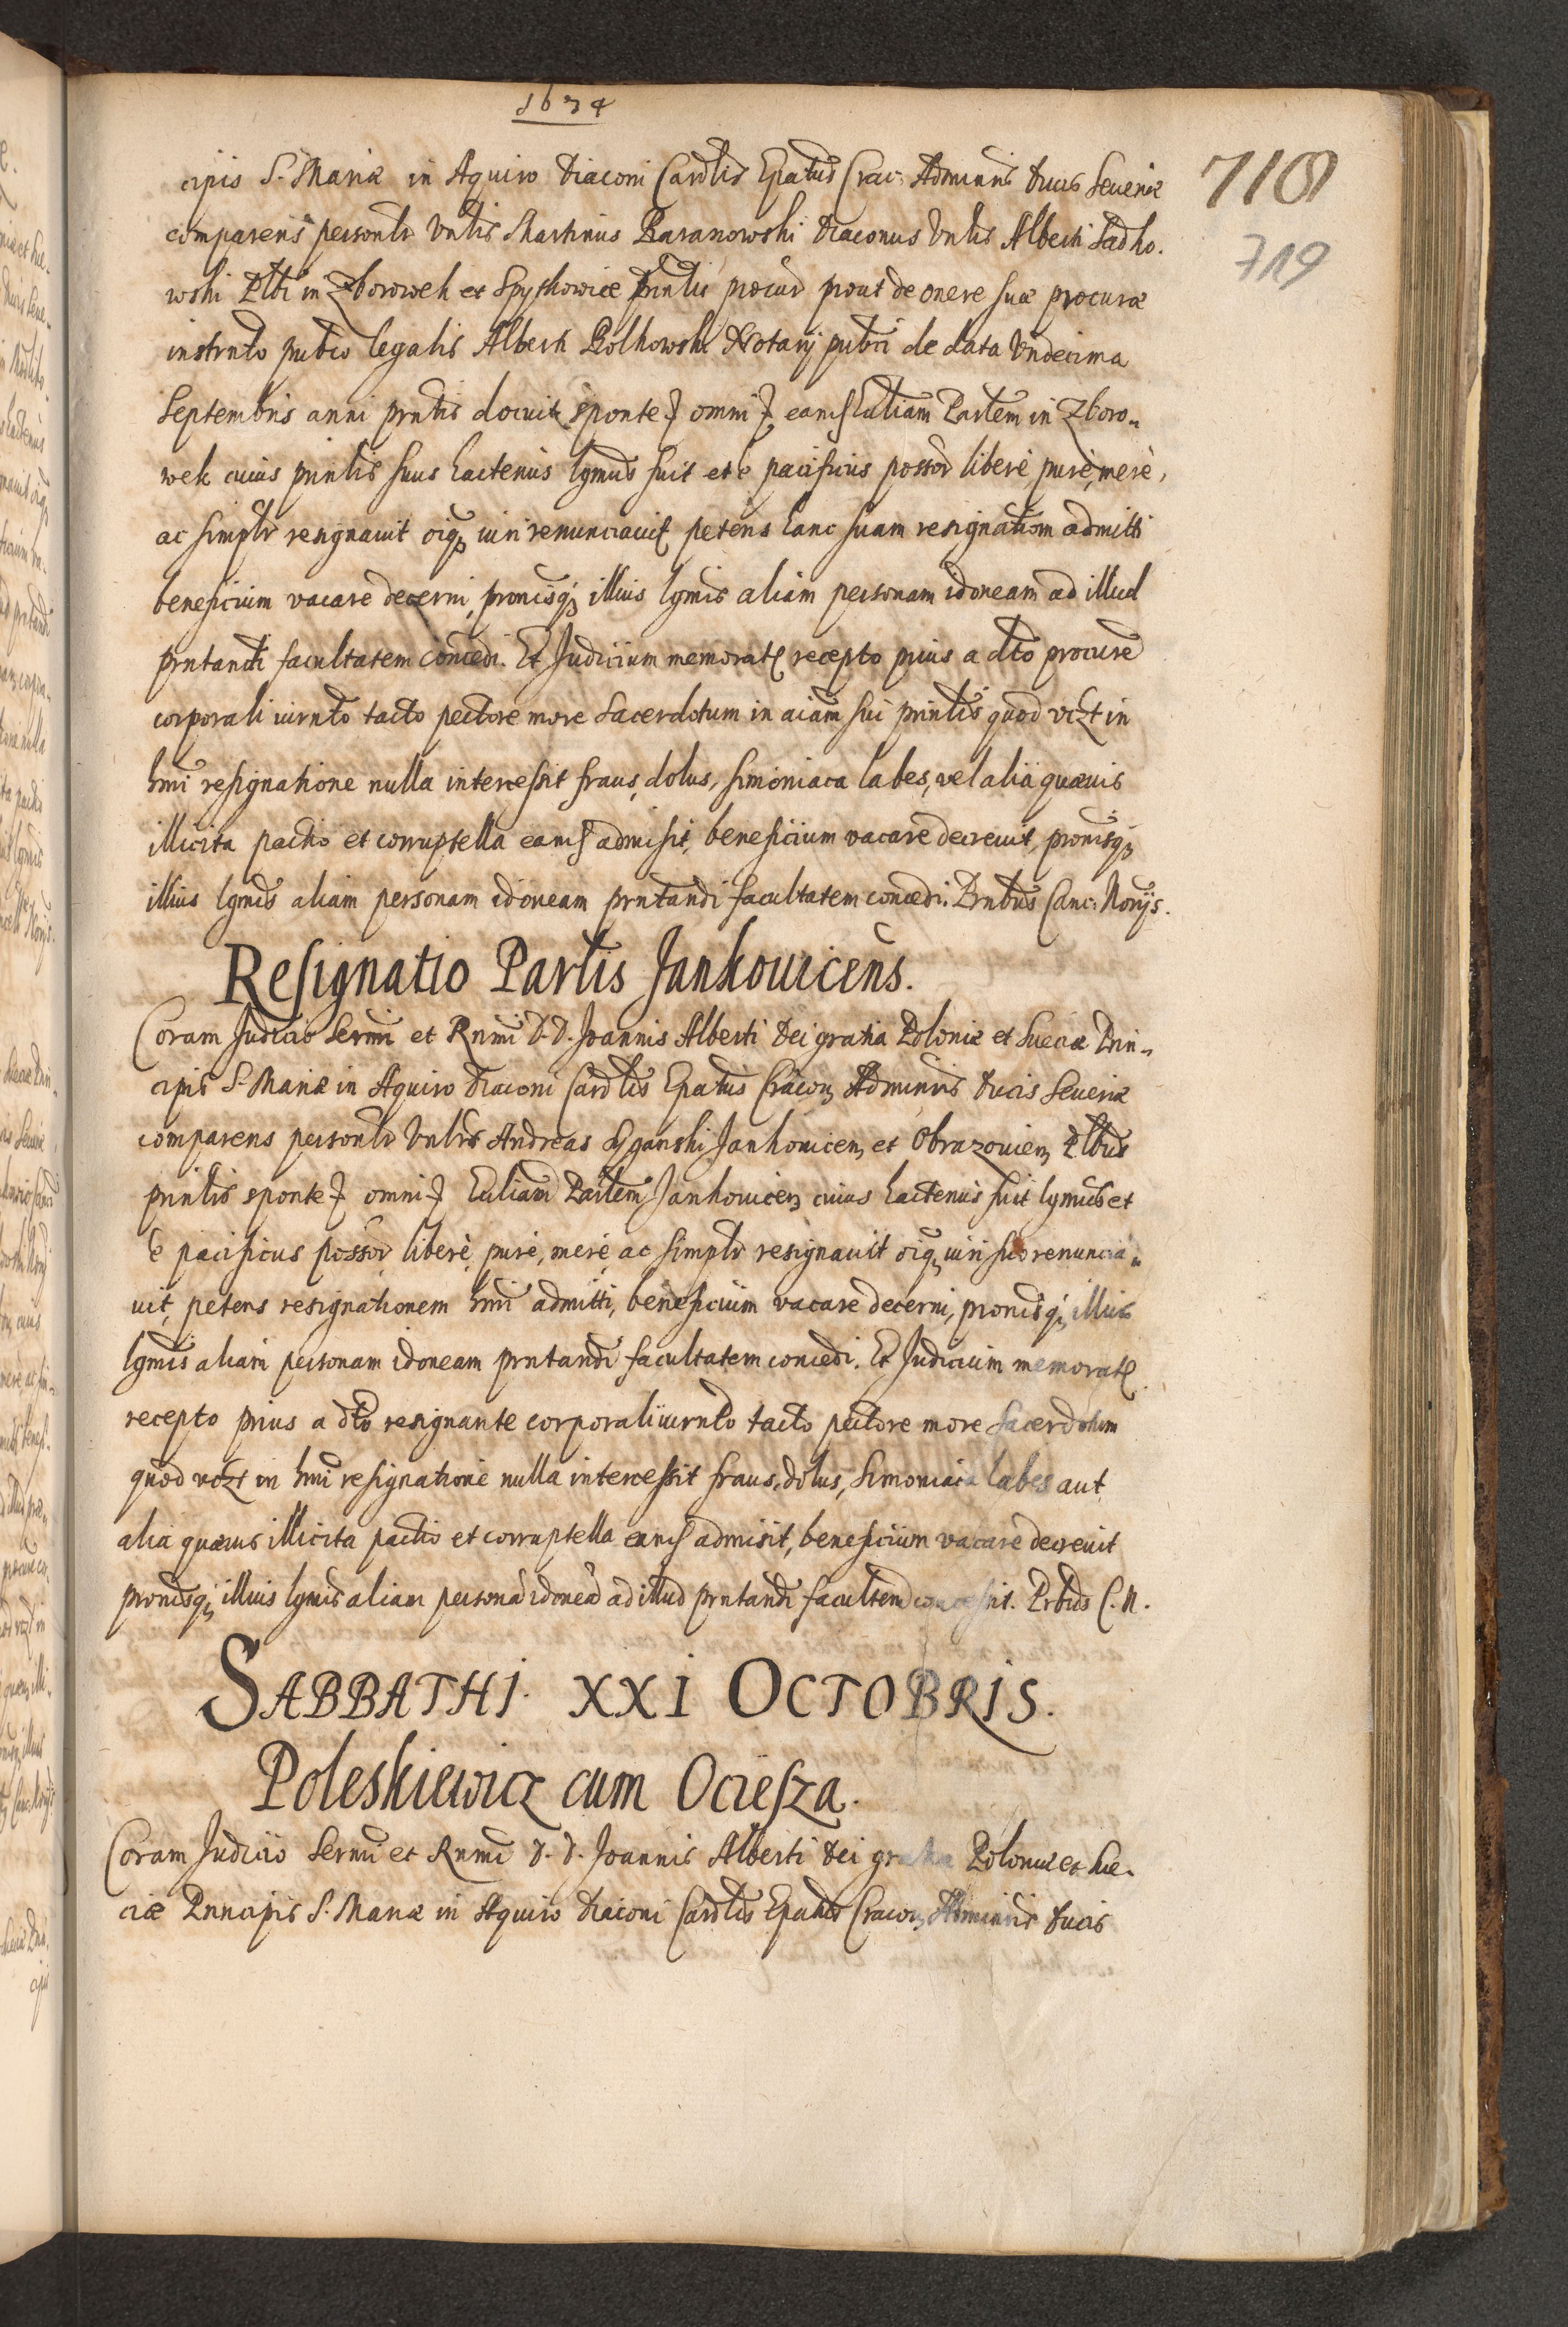 1634
cipis S. Mariæ in Aquiro Diaconi Cardlis Epatus Crac: Adminris Ducis Seueriæ
718
comparens personlr Vnlis Martinus Baranowski Diaconus Vnlis Alberti Sadko.
719
wski Plbi in Zborowek et Spytkowice prinlis procur prout de onere suæ procuræ
instrnto publco legalis Alberti Bolkowski Notarij publci de data Vndecima
Septembris anni prntis docuit sponte omni eand Ecliam Parlem in Zboro-
wek cuius prinlis suus hactenus lgmus fuit et e pacificus possor liberè purè, merè,
ac simplr resignauit oiq iuri renunciauit petens hanc suam resignatiom admitti
beneficium vacare decerni, pronisq illius lgmis aliam personam idoneam ad illud
prntandi facultatem concedi. Et Judicium memorat recepto prius a dto procure
corporali iurnto tacto pectore more Sacerdotum in aiam sui prinlis quod vczt in
hmi resignatione nulla intercessit fraus, dolus, simoniaca labes, vel alia quæuis
illicita pactio et corruptella eand admisit, beneficium vacare decreuit, pronisq
illius lgmis aliam personam idoneam prntandi facultatem concedi. Prntbus Canc: Norijs.
Resignatio Parlis Jankouicens.
Coram Judicio Sermi et Rnmi D. D. Joannis Alberti Dei gratia Poloniæ et Sueciæ Prin-
cipis S. Mariæ in Aquiro Diaconi Cardlis Epatus Cracou Adminris Ducis Seueriæ
comparens personlr Vnlis Andreas Cyganski Jankouicen et Obrazouien Plbus
prinlis sponte omni Ecliam Parlem Jankouicen cuius hactenus fuit lgmus et
e pacificus possor liberè, purè, merè, ac simplr resignauit oiq iuri suo renuncia-
uit, petens resignationem hmi admitti, beneficium vacare decerni, pronisq illius
lgmis aliam personam idoneam prntandi facultatem concedi. Et Judicium memorat
recepto prius a dto resignante corporali iurnto tacto pectore more Sacerdotum
quod vczt in hmi resignatione nulla intercessit fraus, dolus, Simoniaca labes aut
alia quæuis illicita pactio et corruptella eand admisit, beneficium vacare decreuit
pronisq illius lgmis aliam personã idoneã ad illud prntandi facultem concessit. Prbus C. N.
SABBATHI XXI OCTOBRIS.
Poleskiewicz cum Ociesza.
Coram Judicio Sermi et Rnmi D. D. Joannis Alberti Dei gratia Poloniæ et Sue-
ciæ Principis S. Mariæ in Aquiro Diaconi Cardlis Epatus Cracou Adminris Ducis